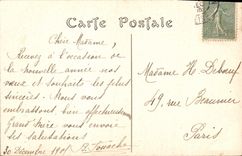 Carte Postale
Chère Madame,
Recevez à l'occasion de
la nouvelle année nos
vœux et souhaits les plus
sincères. Nous vous
embrassons bien affectueusement
Grand'mère vous envoie
ses salutations
30 Décembre
Madame H Debouf
49, rue Beaunier
Paris